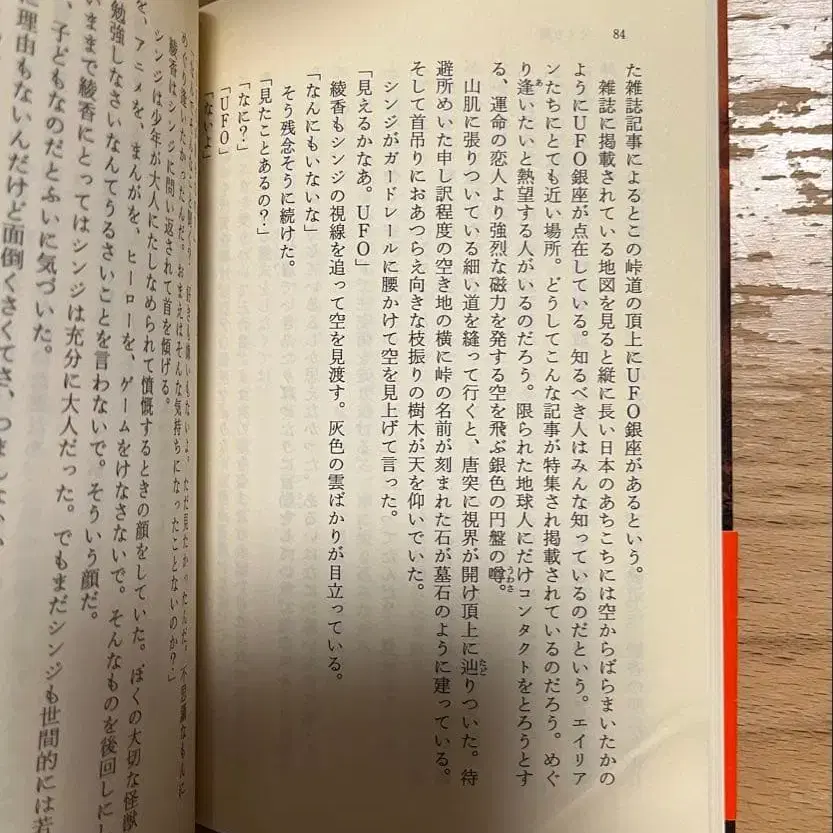 84
た雑誌記事によるとこの峠道の頂上にUFO銀座があるという。
雑誌に掲載されている地図を見ると縦に長い日本のあちこちには空からばらまいたかの
ようにUFO銀座が点在している。知るべき人はみんな知っているのだという。エイリア
ンたちにとても近い場所。どうしてこんな記事が特集され掲載されているのだろう。めぐ
り逢いたいと熱望する人がいるのだろう。限られた地球人にだけコンタクトをとろうとす
る、運命の恋人より強烈な磁力を発する空を飛ぶ銀色の円盤の噂。
山肌に張りついている細い道を縫って行くと、唐突に視界が開け頂上に辿りついた。待
避所めいた申し訳程度の空き地の横に峠の名前が刻まれた石が墓石のように建っている。
そして首吊りにおあつらえ向きな枝振りの樹木が天を仰いでいた。
シンジがガードレールに腰かけて空を見上げて言った。
「見えるかなあ。UFO」
綾香もシンジの視線を追って空を見渡す。灰色の雲ばかりが目立っている。
「なんにもいないな」
そう残念そうに続けた。
「見たことあるの？」
「なに？」
「UFO」
「ないよ」
好きも嫌いもないよ。ただ見たかったんだ、不思議なもんに
めぐり逢いたかったんだ。おまえはそんな気持ちになったことないのか？」
綾香はシンジに問い返されて首を傾げる。
シンジは少年が大人にたしなめられて憤慨するときの顔をしていた。ぼくの大切な怪獣
を、アニメを、まんがを、ヒーローを、ゲームをけなさないで。そんなものを後回しにし
勉強しなさいなんてうるさいことを言わないで。そういう顔だ。
いままで綾香にとってはシンジは充分に大人だった。でもまだシンジも世間的には若
、子どもなのだとふいに気づいた。
に理由もないんだけど面倒くさくてさ、つまんな